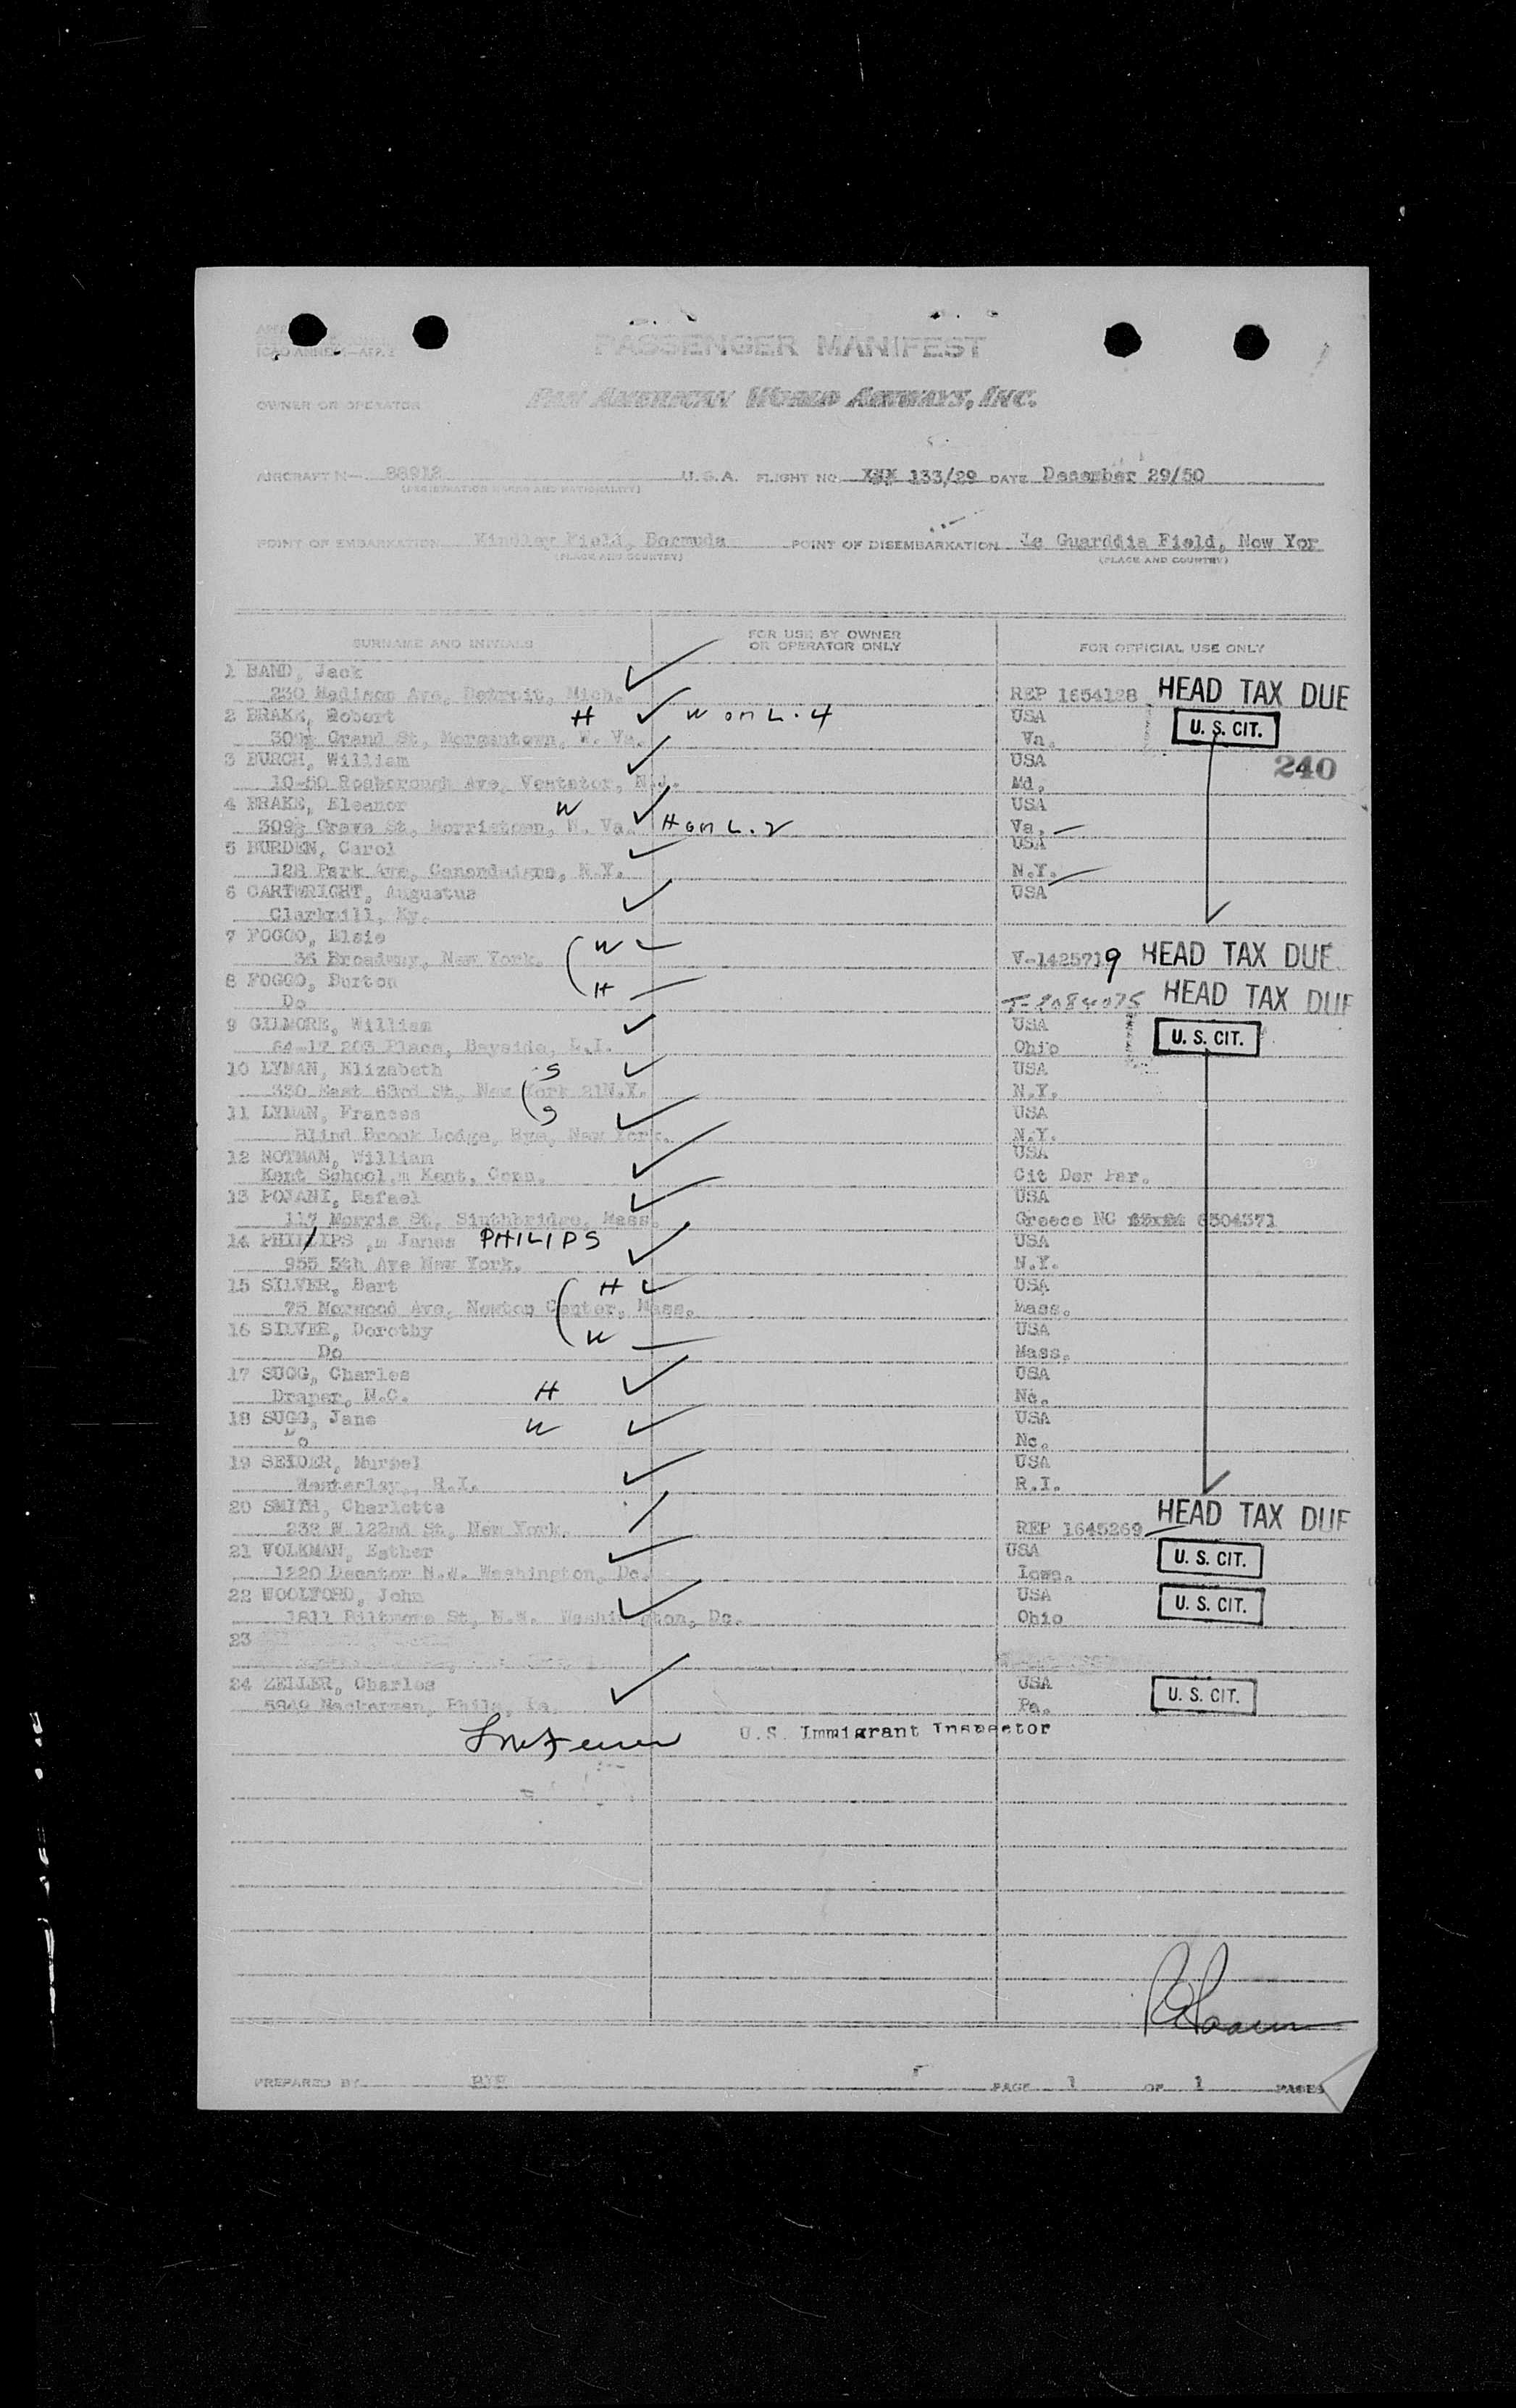 ICAO ANNEX
PASSENGER MANIFEST
OWNER OR OPERATOR PAN AMERICAN WORLD AIRWAYS, INC.
AIRCRAFT N— 88912 U.S.A. FLIGHT NO. XXX 133/29 DATE December 29/50
(REGISTRATION MARKS AND NATIONALITY)
POINT OF EMBARKATION Kindley Field, Bermuda POINT OF DISEMBARKATION La Guarddia Field, New Yor
(PLACE AND COUNTRY) (PLACE AND COUNTRY)
SURNAME AND INITIALS FOR USE BY OWNER OR OPERATOR ONLY FOR OFFICIAL USE ONLY
1 BAND, Jack
230 Madison Ave, Detroit, Mich. REP 1654128 HEAD TAX DUE
2 BRAKE, Robert H W on L. 4 USA U. S. CIT.
Grand St, Morgantown, W. Va. Va.
3 BURCH, William USA 240
10-50 Rosborough Ave, Ventator, N.J. Md.
4 BRAKE, Eleanor W USA
St, Morristown, W. Va. H on L. 2 Va.
5 BURDEN, Carol USA
128 Park Ave, Canandaigua, N.Y. N.Y.
6 CARTWRIGHT, Augustus USA
Ky.
7 FOGGO, Elsie W
36 Broadway, New York. V-1425719 HEAD TAX DUE
8 FOGGO, Burton H
Do T-2084075 HEAD TAX DUE
9 GILMORE, William USA U. S. CIT.
64-17 203 Place, Bayside, L.I. Ohio
10 LYMAN, Elizabeth S USA
330 East 63rd St, New York 21N.Y. N.Y.
11 LYMAN, Frances S USA
Blind Brook Lodge, Rye, New York. N.Y.
12 NOTMAN, William USA
Kent School,m Kent, Conn. Cit Der Par.
13 POJANI, Rafael USA
117 Morris St, Sinthbridge, Mass. Greece NC 6504371
14 PHILLIPS ,m James PHILIPS USA
955 5th Ave New York. N.Y.
15 SILVER, Bert H USA
75 Norwood Ave, Newton Center, Mass. Mass.
16 SILVER, Dorothy W USA
Do Mass.
17 SUGG, Charles USA
Draper, N.C. H Nc.
18 SUGG, Jane W USA
Do Nc.
19 SEIDER, Muriel USA
Westerley,, R.I. R.I.
20 SMITH, Charlotte HEAD TAX DUE
232 W 122nd St, New York. REP 1645269
21 VOLKMAN, Esther USA U. S. CIT.
1220 Decator N.W. Washington, Dc. Iowa.
22 WOOLFORD, John USA U. S. CIT.
1811 Biltmore St, N.W. Washington, Dc. Ohio
23
24 ZELLER, Charles USA U. S. CIT.
Phila, Pa. Pa.
U.S. Immigrant Inspector
PREPARED BY PAGE 1 OF 1 PAGES